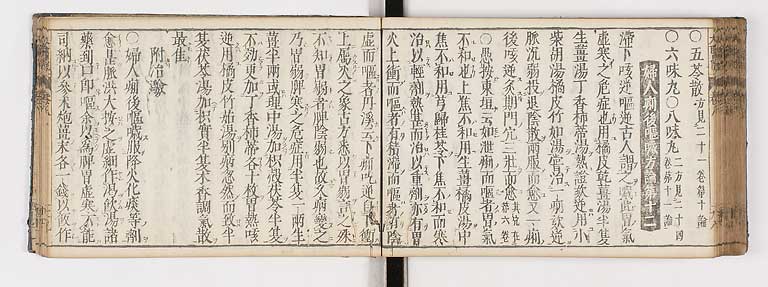 ○五苓散 方見二十一卷第十論
○六味丸○八味丸 二方見二十四卷第十論
婦人痢後嘔噦方論第十二
滯下咳逆嘔逆古人謂之噦此胃氣
虛寒之危症也用橘皮乾薑湯半夏
生薑湯丁香柿蒂湯熱證欬逆用小
柴胡湯橘皮竹茹湯嘗治一病欬逆
脉沉弱投退陰散兩服而愈又一痢
後咳逆灸期門穴三壯而愈
○愚按東垣云如泄痢而嘔者胃氣
不和也上焦不和用生薑橘皮湯中
焦不和用芎歸桂苓下焦不和而寒
治以輕劑熱甚而治以重劑亦有胃
火上衝而嘔者有積滯而嘔者有陰
虛而嘔者丹溪云下痢咳逆自下衝
上屬火之象古方悉以胃弱言之殊
不知胃弱者脾陰弱也故久病變之
乃胃弱脾寒之危症用半夏一兩生
薑半兩或理中湯加枳殼茯苓半夏
不効更加丁香柿蒂各十枚胃熱咳
逆用橘皮竹茹湯痢病忽然而致半
夏茯苓湯加枳實半夏木香調氣散
最佳
附治驗
○一婦人痢後嘔噦服降火化痰等劑
愈甚脈洪大按之虛細作渴飲湯諸
藥到口即嘔余以為脾胃虛寒不能
司納以參朮炮薑末各一錢以飯作